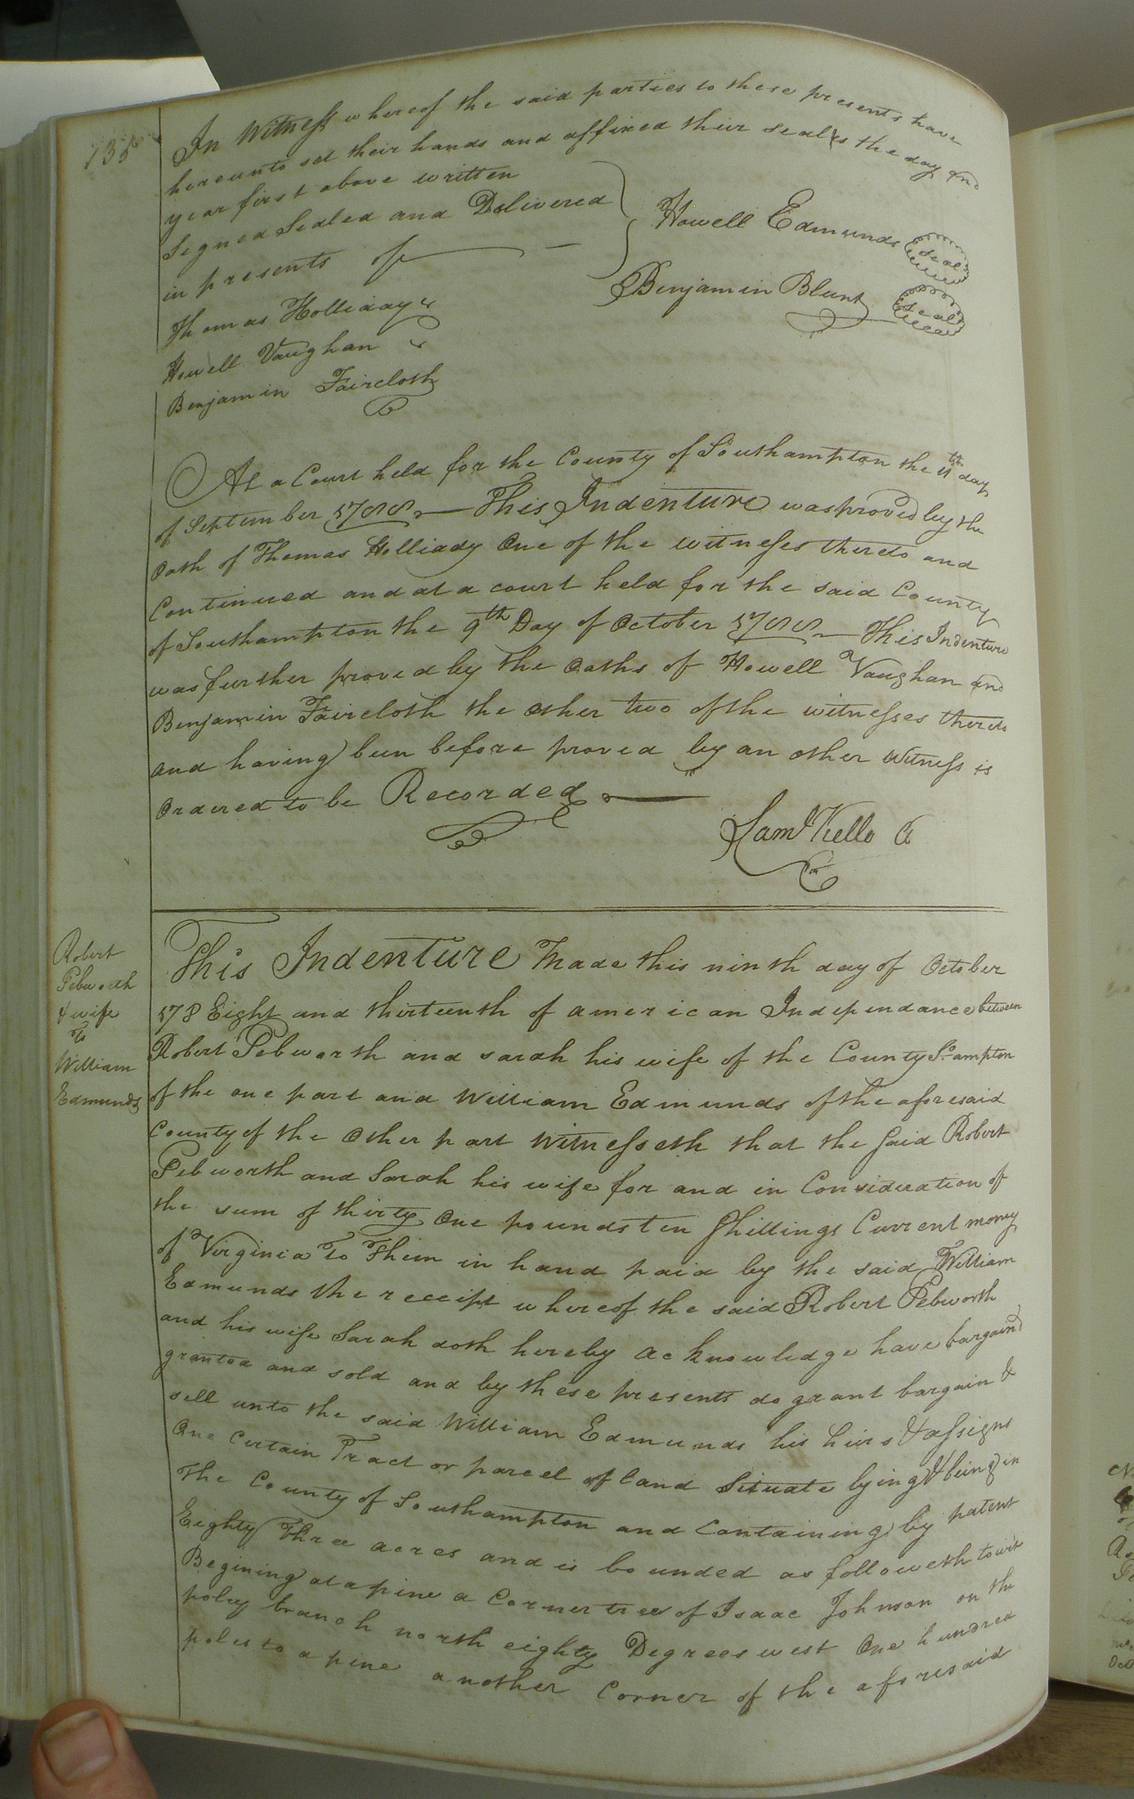 135
In Witness whereof the said parties to these presents have
hereunto set their hands and affixed their seals the day and
year first above written
Signed Sealed and Delivered
in presents of
Howell Edmunds seal
Benjamin Blunt seal
Thomas Holliday
Howell Vaughan
Benjamin Faircloth
At a Court held for the County of Southampton the 11th day
of September 1788 This Indenture was proved by the
Oath of Thomas Holliday One of the witnesses thereto and
Continued and at a court held for the said County
of Southampton the 9th Day of October 1788 This Indenture
was further proved by the Oaths of Howell Vaughan and
Benjamin Faircloth the other two of the witnesses thereto
and having been before proved by an other Witness is
Ordered to be Recorded
Saml Kello
Robert
Pebworth
& wife
To
William
Edmunds
This Indenture Made this ninth day of October
178Eight and thirteenth of american Independance between
Robert Pebworth and sarah his wife of the County So ampton
of the one part and William Edmunds of the aforesaid
County of the Other part Witnesseth that the said Robert
Pebworth and Sarah his wife for and in Consideration of
the sum of thirty One pounds ten Shillings Current money
of Virginia To Them in hand paid by the said William
Edmunds the receipt whereof the said Robert Pebworth
and his wife Sarah doth hereby acknowledge have bargaind
granted and sold and by these presents do grant bargain &
sell unto the said William Edmunds his heirs & assigns
One Certain Tract or parcel of land Situate lying & being in
The County of Southampton and Containing by patent
Eighty Three acres and is bounded as followeth to wit
Begining at a pine a Corner tree of Isaac Johnson on the
poley branch north eighty Degrees west One hundred
poles to a pine another Corner of the aforesaid